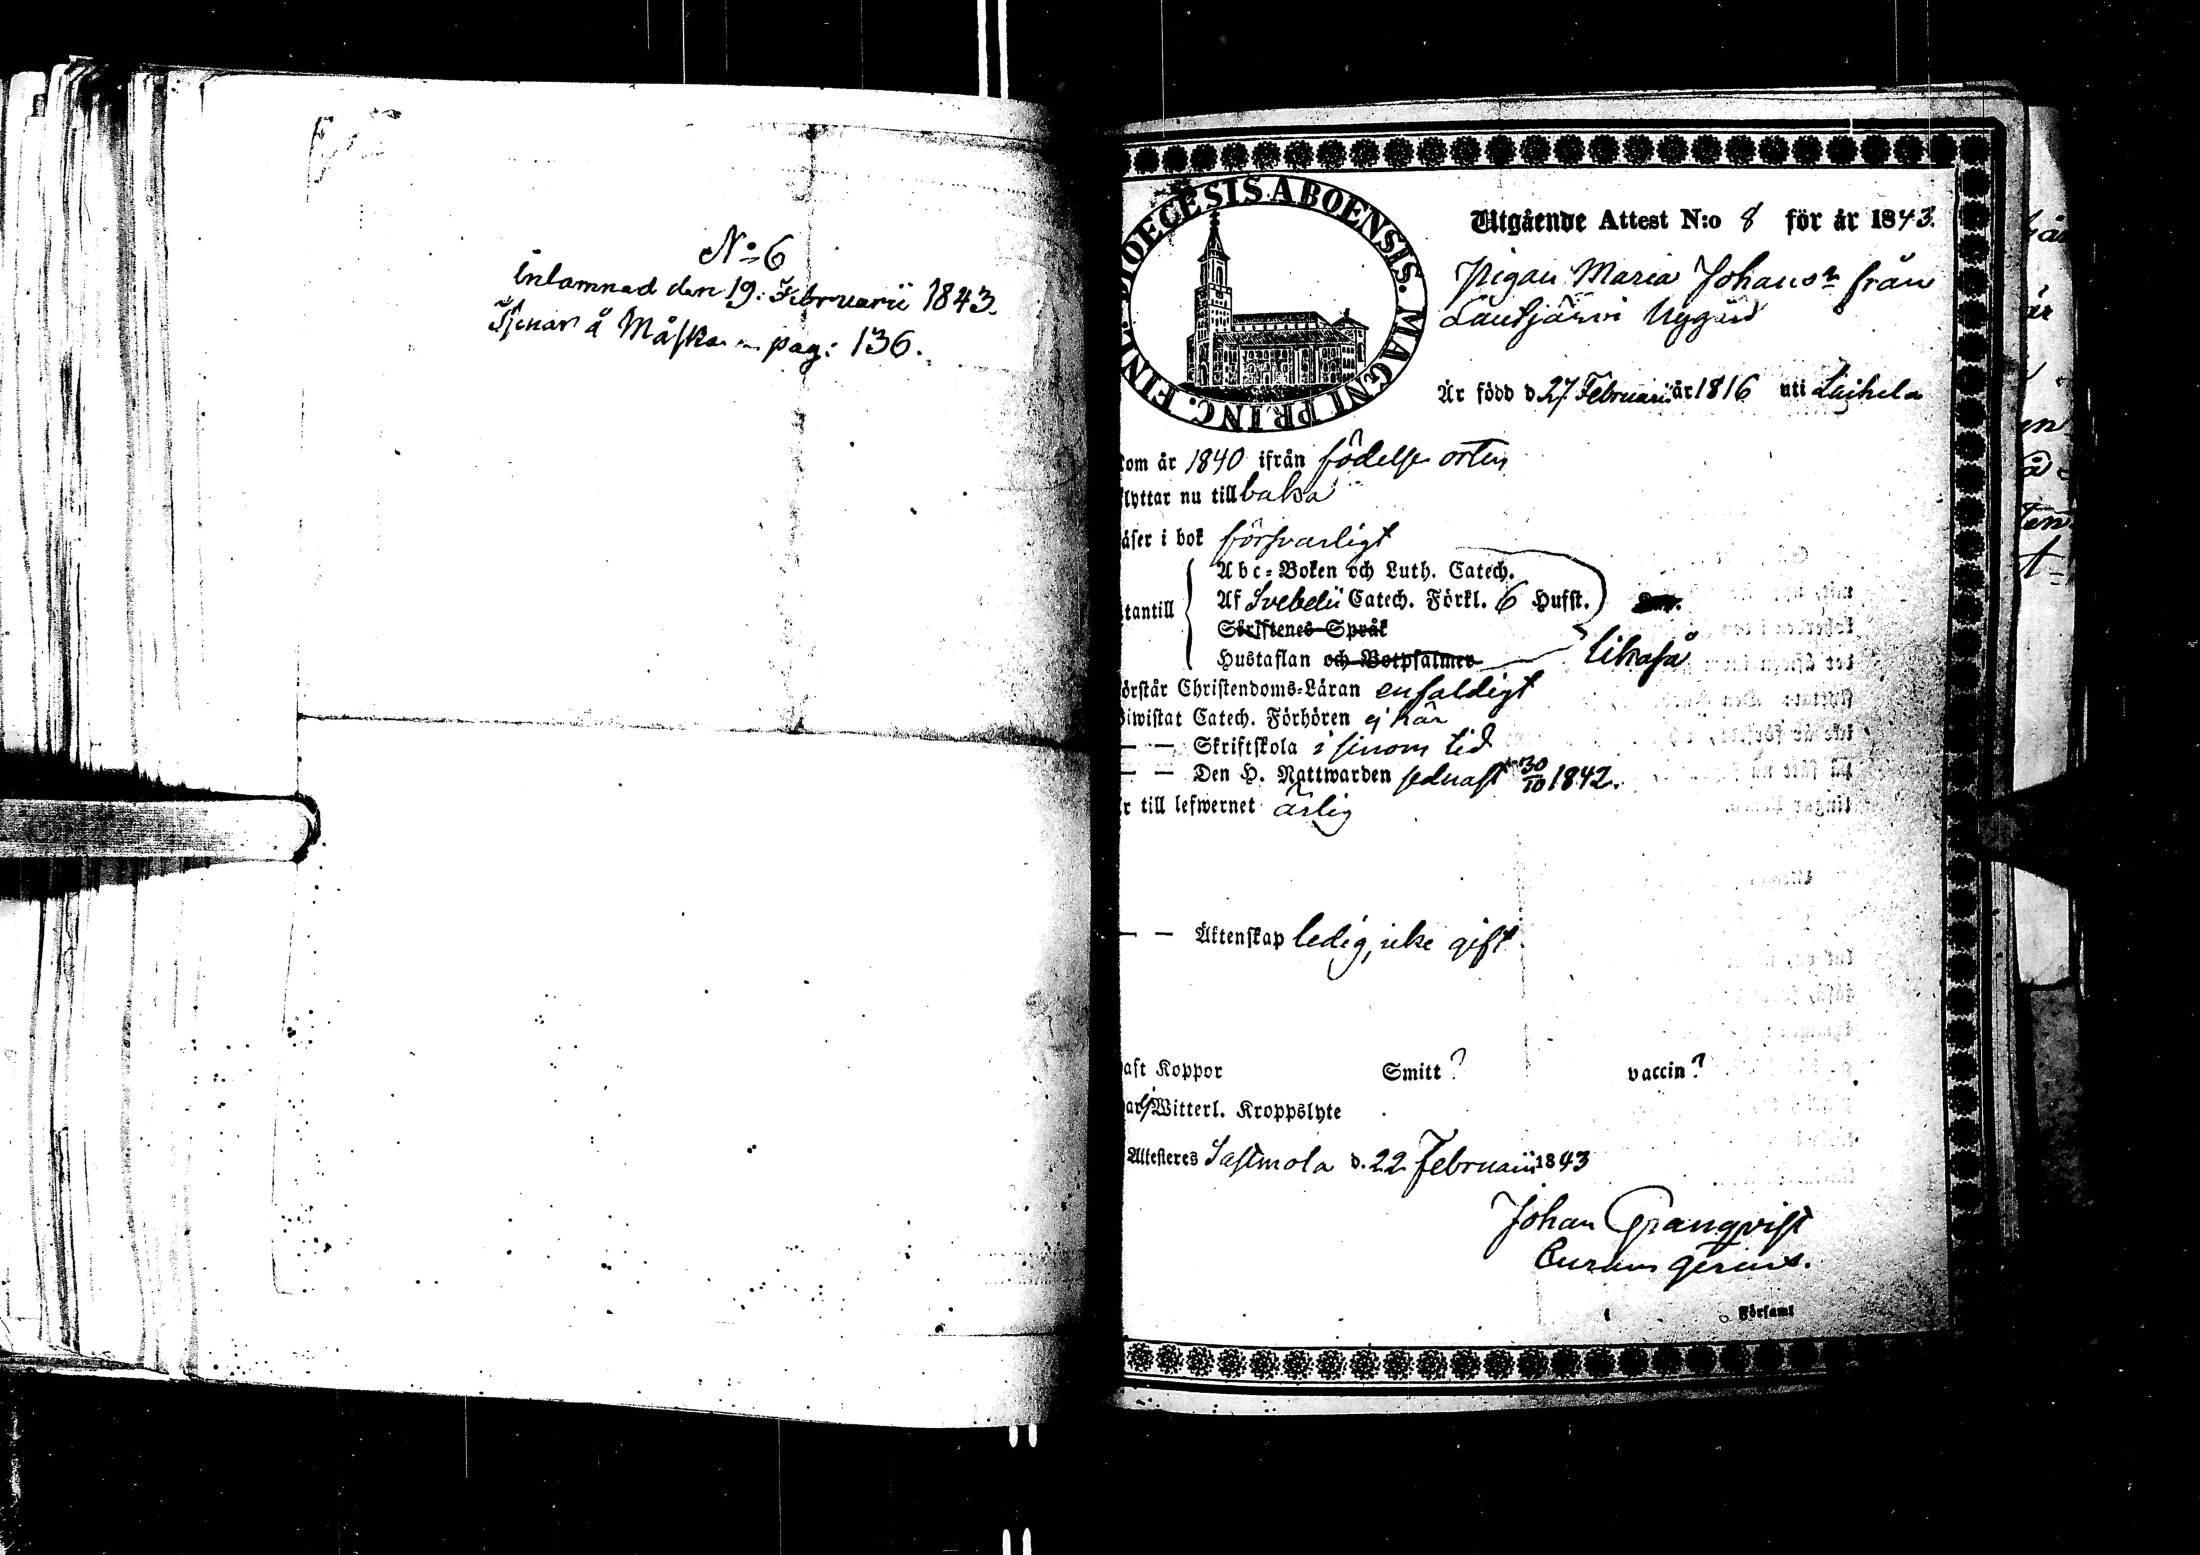 No 6
Inlamnad den 19. Februarii 1843.
Tjenar å Måska pag: 136.
DIOECESIS ABOENSIS. MAGNI PRINC. FINL.
Utgående Attest N:o 8 för år 1843.
Pigan Maria Johansr från
Lautjärvi Nygård
Är född d 27 Februarii år 1816 uti Laihela
kom år 1840 ifrån födelse orten
flyttar nu till baka
äser i bok försvarligt
Abc-Boken och Luth. Catech.
Af Svebelii Catech. Förkl. 6 Hufst.
tantill
Skriftenes Språk
Hustaflan och Botpsalmer likaså
örstår Christendoms-Läran enfaldigt
Biwistat Catech. Förhören ej här
— — Skriftskola i sinom tid
— — Den H. Nattwarden sednast 30/10 1842.
r till lefwernet ärlig
— — Äktenskap ledig, icke gift
aft Koppor Smitt? vaccin?
ar ej Witterl. Kroppslyte
Attesteres Sastmola d. 22 Februarii 1843
Johan Granqvist
Curam gerens.
Församl